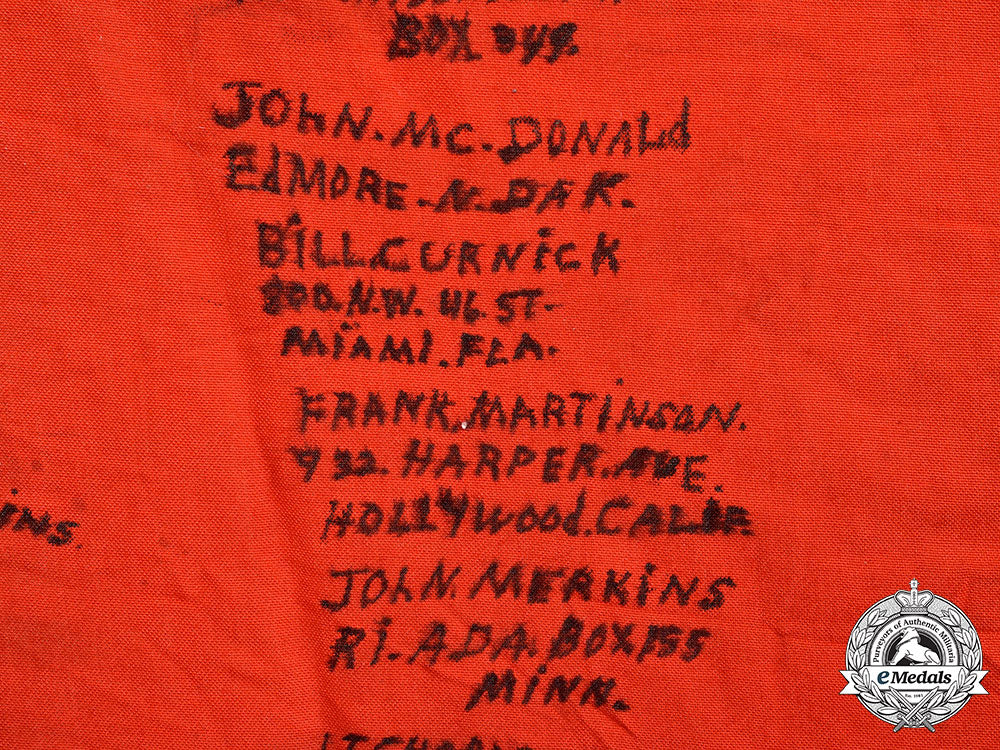 BOX
JOHN. MC. DONALd
EdMORE. N. DAK.
BiLL. CURNiCK
800. N.W. 46. ST.
MiAMi. FLA.
FRANK. MARTiNSON.
932. HARPER. AVE.
HOLLYWOOd. CALIF.
iNS.
JOhN. MERKiNS
Ri. ADA. BOX 155
MiNN.
Purveyors of Authentic Militaria
eMedals